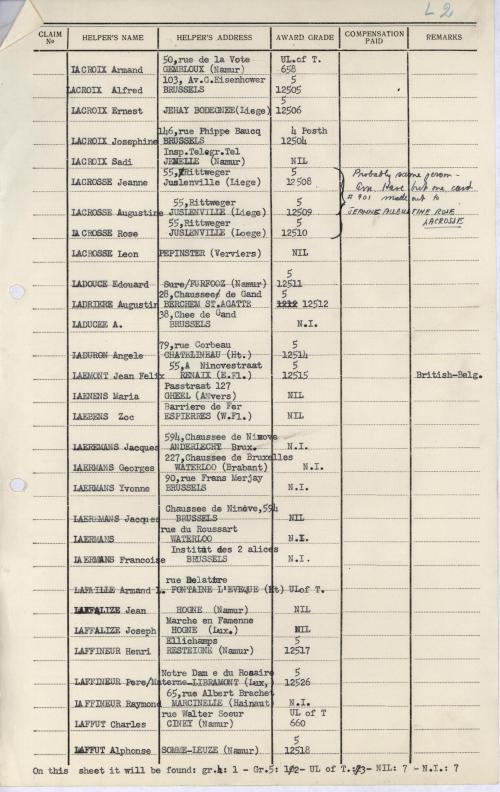 L2
CLAIM No HELPER'S NAME HELPER'S ADDRESS AWARD GRADE COMPENSATION PAID REMARKS
50,rue de la Vote UL.of T.
LACROIX Armand GEMBLOUX (Namur) 658
103, Av.G.Eisenhower 5
LACROIX Alfred BRUSSELS 12505
5
LACROIX Ernest JEHAY BODEGNEE(Liege) 12506
146,rue Phippe Baucq 4 Posth
LACROIX Josephine BRUSSELS 12504
Insp.Telegr.Tel
LACROIX Sadi JEMELLE (Namur) NIL
55,Rittweger 5
LACROSSE Jeanne Juslenville (Liege) 12508
Probably same person -
One. Have but one card
# 901 made out to
JEANNE AUGUSTINE ROSE
LACROSSE
55,Rittweger 5
LACROSSE Augustine JUSLENVILLE (Liege) 12509
55,Rittweger 5
LACROSSE Rose JUSLENVILLE (Loege) 12510
LACROSSE Leon PEPINSTER (Verviers) NIL
5
LADOUCE Edouard Sure/FURFOOZ (Namur) 12511
28,Chaussee de Gand 5
LADRIERE Augustin BERCHEM ST.AGATTE 1212 12512
38,Chee de Gand
LADUCEE A. BRUSSELS N.I.
79,rue Corbeau 5
LADURON Angele CHATELINEAU (Ht.) 12514
55,A Ninovestraat 5
LAEMONT Jean Felix RENAIX (E.Fl.) 12515 British-Belg.
Passtraat 127
LAENENS Maria GHEEL (Anvers) NIL
Barriere de Fer
LAEBENS Zoc ESPIERRES (W.Fl.) NIL
594,Chaussee de Ninove
LAEREMANS Jacques ANDERLECHT Brux. N.I.
227,Chaussee de Bruxelles
LAERMANS Georges WATERLOO (Brabant) N.I.
90,rue Frans Merjay
LAERMANS Yvonne BRUSSELS N.I.
Chaussee de Ninève,594
LAEREMANS Jacques BRUSSELS NIL
rue du Roussart
LAERMANS WATERLOO N.I.
Institut des 2 alices
LAERMANS Francoise BRUSSELS N.I.
rue Delattre
LAFAILLE Armand L. FONTAINE L'EVEQUE (Ht) ULof T.
LAFFALIZE Jean HOGNE (Namur) NIL
Marche en Famenne
LAFFALIZE Joseph HOGNE (Lux.) NIL
Ellichamps 5
LAFFINEUR Henri RESTEIGNE (Namur) 12517
Notre Dam e du Rosaire 5
LAFFINEUR Pere/Materne-LIBRAMONT (Lux,) 12526
65,rue Albert Brachet
LAFFINEUR Raymond MARCINELLE (Hainaut) N.I.
rue Walter Soeur UL of T
LAFFUT Charles CINEY (Namur) 660
5
LAFFUT Alphonse SOMME-LEUZE (Namur) 12518
On this sheet it will be found: gr.4: 1 - Gr.5: 12- UL of T.:3- NIL: 7 - N.I.: 7